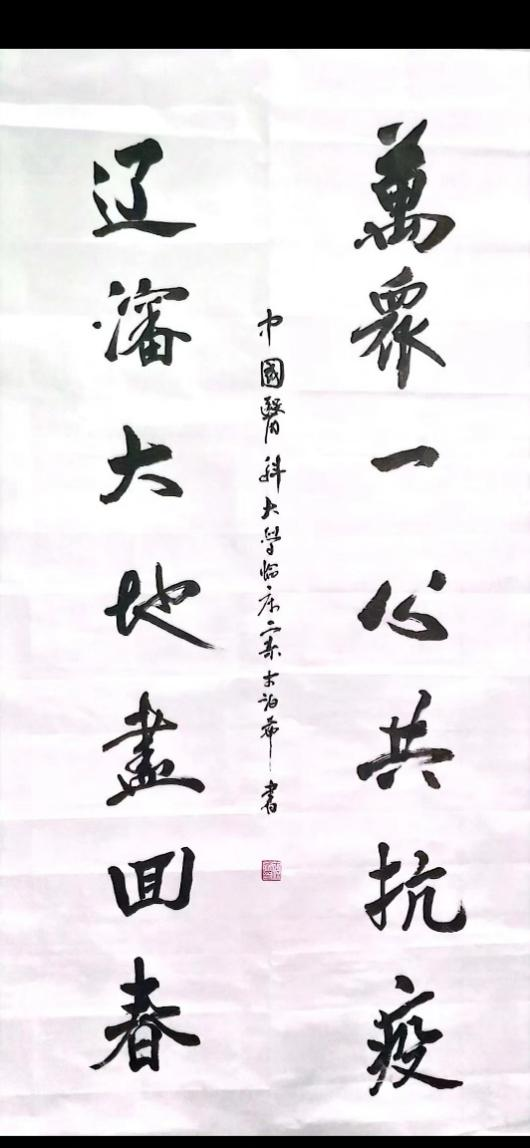 萬眾一心共抗疫
辽瀋大地盡回春
中國醫科大學臨床六案 泊希 書